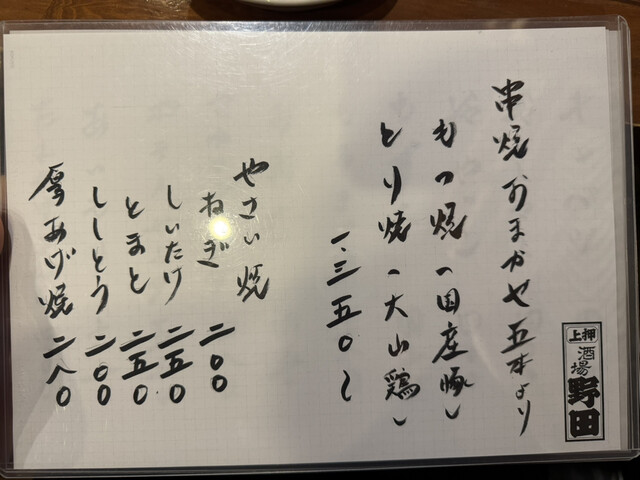 串焼おまかせ五本より
もつ焼(国産豚)
とり焼(大山鶏)
一.三五〇~
やさい焼
ねぎ 二〇〇
しいたけ 二五〇
とまと 二五〇
ししとう 二〇〇
厚あげ焼 二八〇
押上
酒場
野田